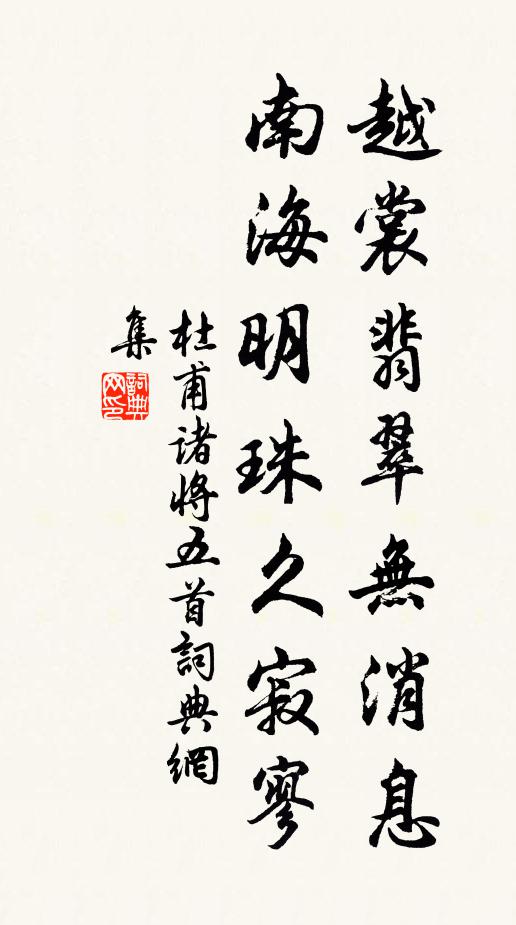 越裳翡翠無消息
南海明珠久寂寥
杜甫諸將五首詞典網
集
詞典
网印